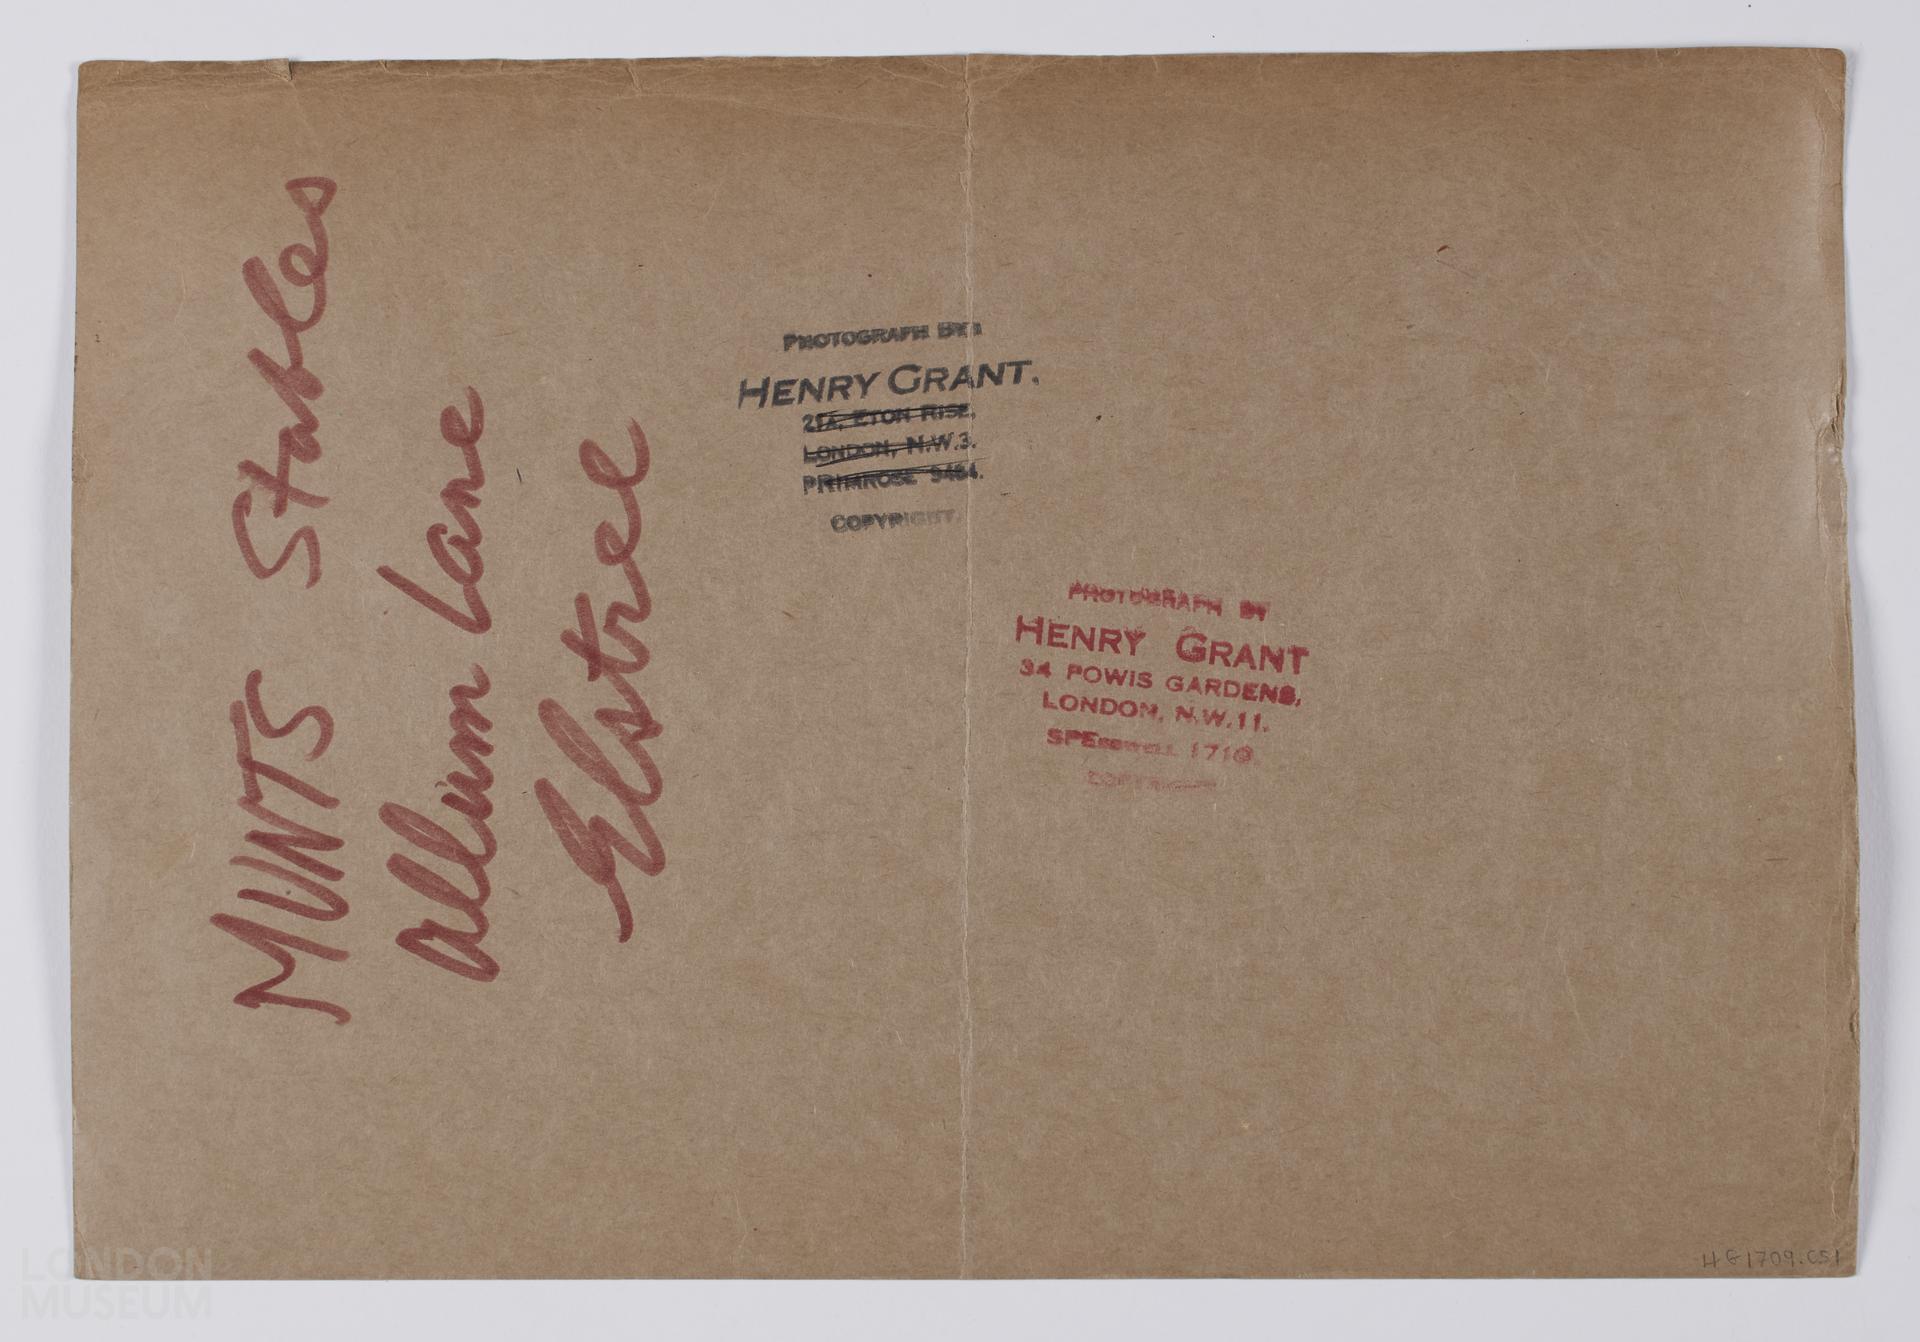 MUNTS Stables
allum Lane
Elstree
PHOTOGRAPH BY:
HENRY GRANT.
27A, ETON RISE,
LONDON, N.W.3.
PRIMROSE 9464.
COPYRIGHT.
PHOTOGRAPH BY
HENRY GRANT
34 POWIS GARDENS,
LONDON, N.W.11.
SPEEDWELL 1710
COPYRIGHT
HG1709.CS1
LONDON
MUSEUM